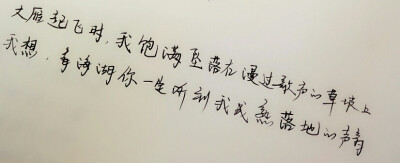 大雁起飞时，我饱满坠落在漫过歌声的草坡上
我想，青海湖你一定听到我成熟落地的声音